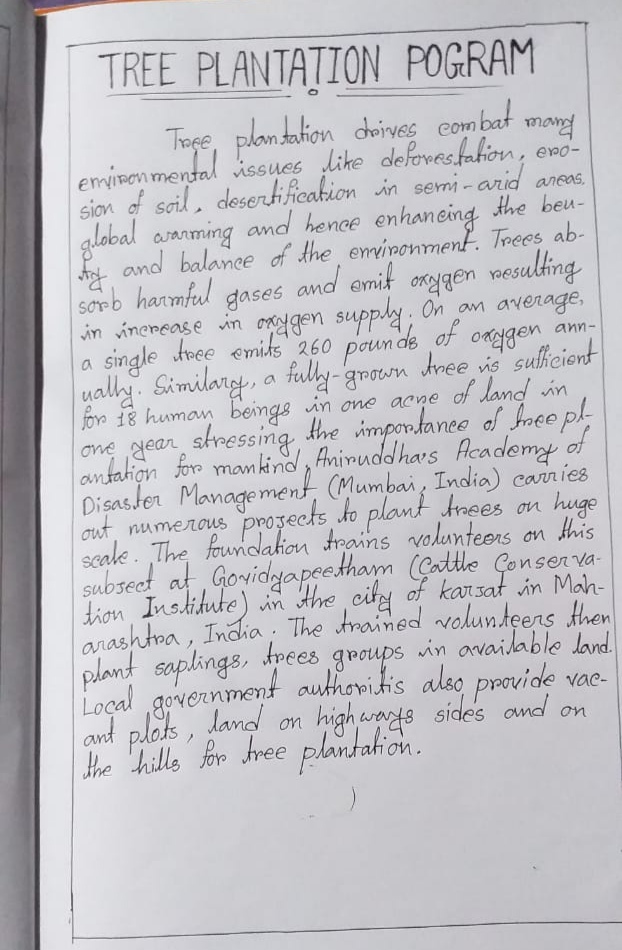 TREE PLANTATION POGRAM
Tree plantation drives combat many
environmental issues like deforestation, ero-
sion of soil, desertification in semi-arid areas,
global warming and hence enhancing the beu-
ty and balance of the environment. Trees ab-
sorb harmful gases and emit oxygen resulting
in increase in oxygen supply. On an average,
a single tree emits 260 pounds of oxygen ann-
ually. Similary, a fully-grown tree is sufficient
for 18 human beings in one acre of land in
one year stressing the importance of tree pl-
antation for mankind, Aniruddha's Academy of
Disaster Management (Mumbai, India) carries
out numerous projects to plant trees on huge
scale. The foundation trains volunteers on this
subject at Govidyapeetham (Cattle Conserva-
tion Institute) in the city of karjat in Mah-
arashtra, India. The trained volunteers then
plant saplings, trees groups in available land.
Local government authoritis also provide vac-
ant plots, land on highways sides and on
the hills for tree plantation.